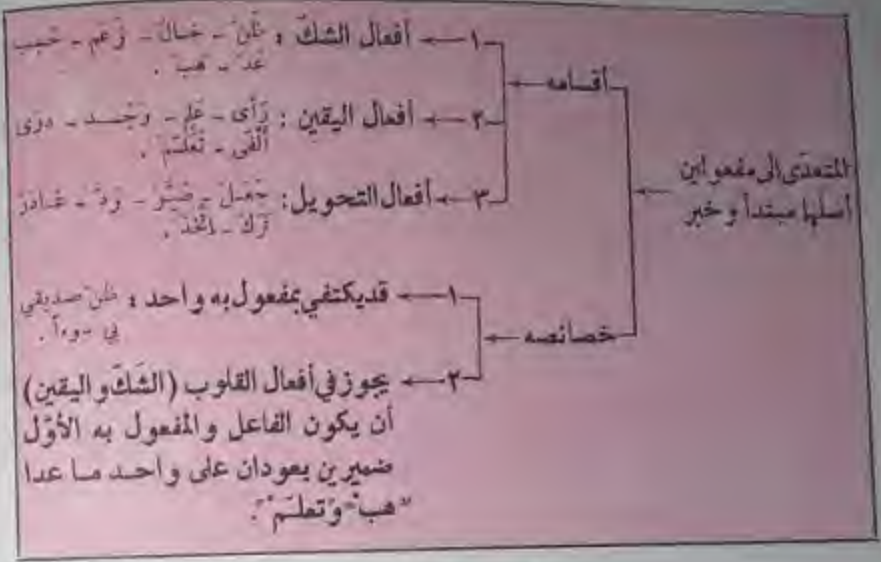 المتعدّى الى مفعولين
أصلها مبتدأ وخبر
أقسامه
١ـ أفعال الشكّ : ظَنّ - خالَ - زَعَم - حَسِب
عَدّ - هَبْ .
٢ـ أفعال اليقين : رَأى - عَلِم - وَجَد - دَرى
أَلْفَى - تَعَلَّمْ .
٣ـ أفعال التحويل : جَعَل - صَيَّر - رَدّ - غادَر
تَرَك - اتَّخَذ .
خصائصه
١ـ قد يكتفي بمفعول به واحد : ظنّ صديقي
بي سوءاً .
٢ـ يجوز في أفعال القلوب (الشكّ و اليقين)
أن يكون الفاعل والمفعول به الأوّل
ضميرين يعودان على واحد ما عدا
"هبْ" و"تعلّمْ".